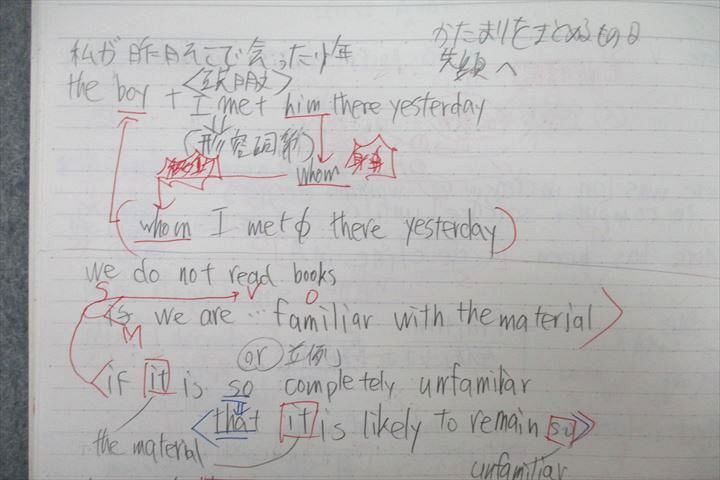 かたまりをまとめるものヨ
先頭へ
私が昨日そこで会った少年
<説明>
the boy + I met him there yesterday
(形容詞節)
whom
(whom I met φ there yesterday)
we do not read books
S V O
we are … familiar with the material>
M
or 並例
<if it is so completely unfamiliar
<that it is likely to remain so>
the material
unfamiliar